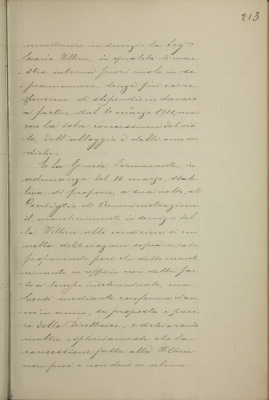 213
mantenere in servizio la Sig.ra
Maria Villem, in qualità di mae-
stra interna fuori ruolo in so-
prannumero, senza più corre-
sponsione di stipendio in denaro
a partire dal 1° marzo 1911, ma
con la sola concessione del vit-
to, dell'alloggio e delle cure me-
diche.
E la Giunta Permanente, in
adunanza del 10 marzo, sta-
tuiva di proporre, a sua volta, al
Consiglio di Amministrazione
il mantenimento in servizio del-
la Villem, alle condizioni di cui
nella deliberazione sopra citata
proponendo però che detto mante-
nimento in ufficio non dovesse far-
si a tempo indeterminato, ma
bensì mediante conferma d'an-
no in anno, su proposta e pare-
re della Direttrice, e dichiarando
inoltre esplicitamente che la
concessione fatta alla Villem
non può e non deve in alcun